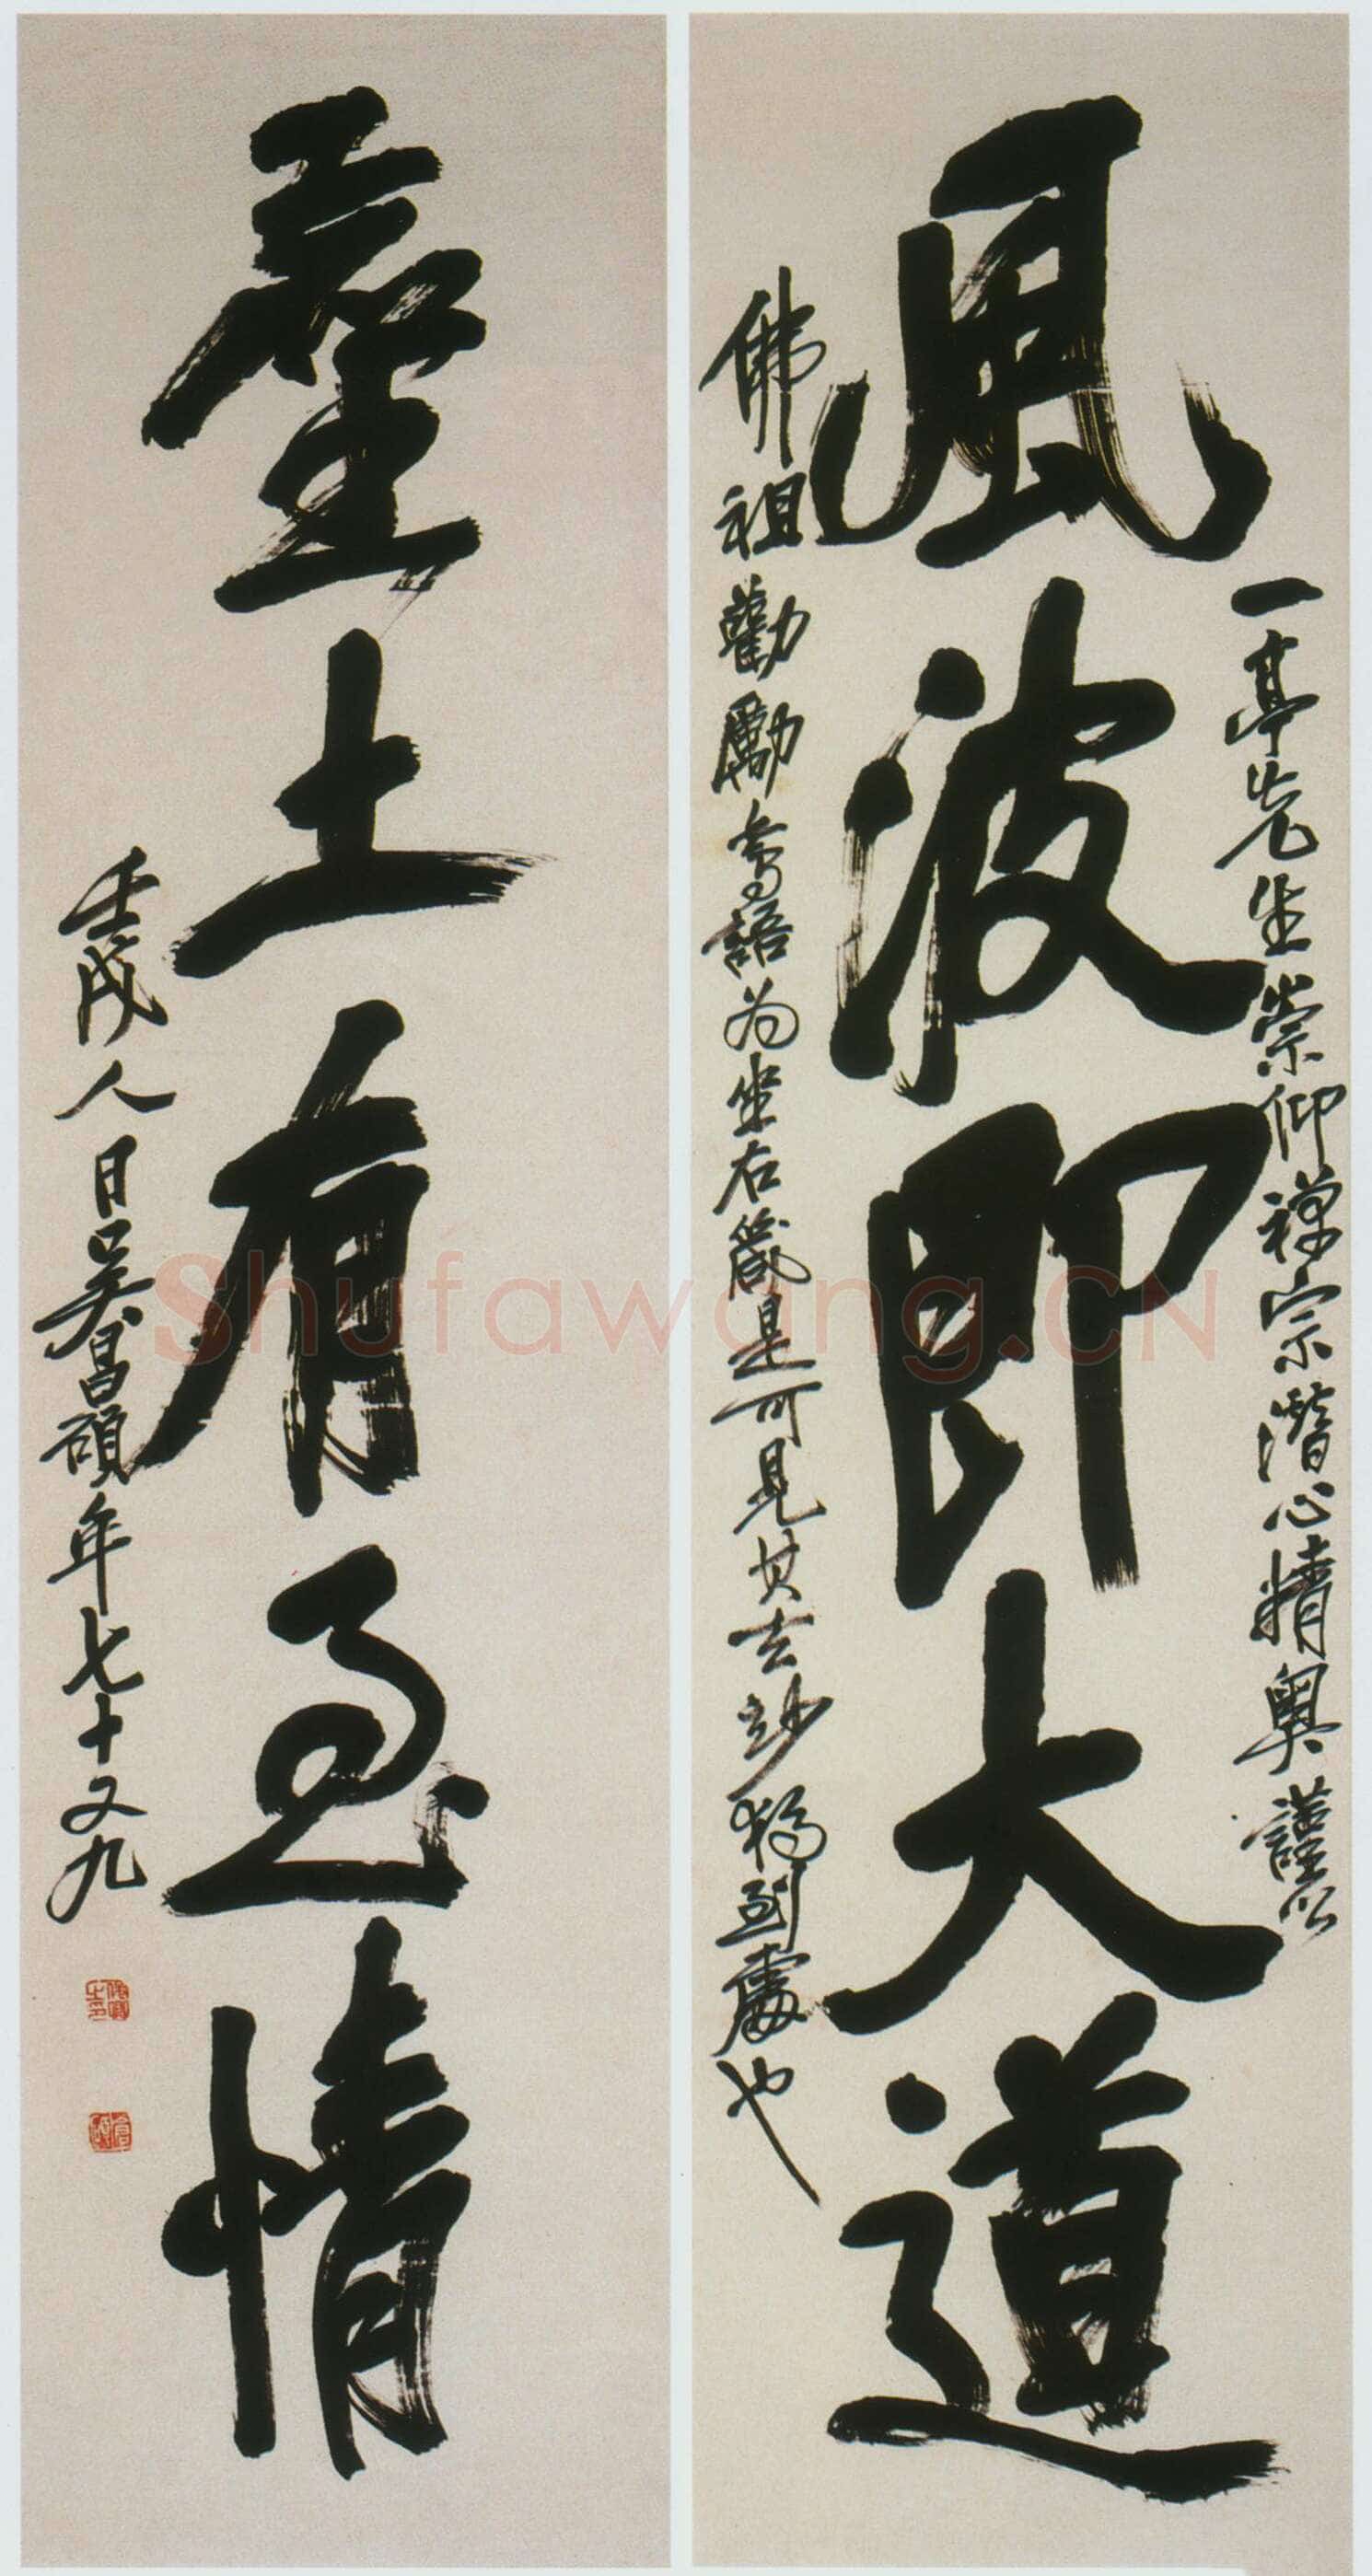 風波即大道
一亭先生崇仰禪宗潛心精奧謹以
佛祖勸勵語為坐右箴是可見其玄妙獨到處也
塵土有至情
壬戌人日吳昌碩年七十又九
俊卿之印
倉碩
Shufawang.CN